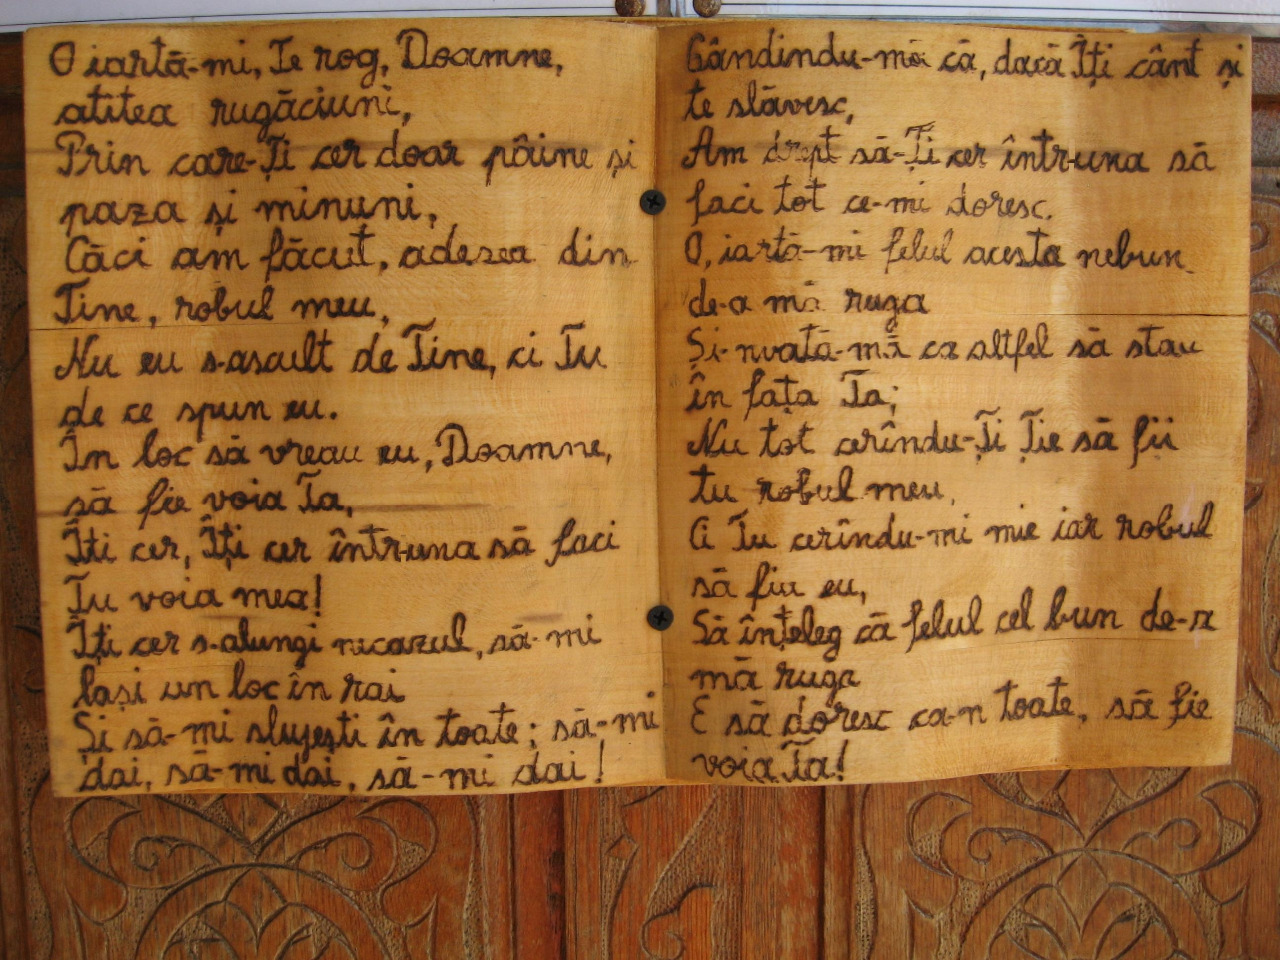 O iartă-mi, Te rog, Doamne,
atîtea rugăciuni,
Prin care-Ți cer doar pâine și
paza și minuni,
Căci am făcut, adesea din
Tine, robul meu,
Nu eu s-ascult de Tine, ci Tu
de ce spun eu.
În loc să vreau eu, Doamne,
să fie voia Ta,
Îti cer, Îți cer într-una să faci
Tu voia mea!
Îți cer s-alungi necazul, să-mi
lași un loc în rai
Și să-mi slujești în toate; să-mi
dai, să-mi dai, să-mi dai!
Gândindu-mă că, dacă Îți cânt și
te slăvesc,
Am drept să-Ți cer într-una să
faci tot ce-mi doresc.
O, iartă-mi felul acesta nebun
de-a mă ruga
Și-nvață-mă ca altfel să stau
în fața Ta;
Nu tot cerîndu-Ți Ție să fii
tu robul meu,
Ci Tu cerîndu-mi mie iar robul
să fiu eu,
Să înțeleg că felul cel bun de-a
mă ruga
E să doresc ca-n toate, să fie
voia Ta!